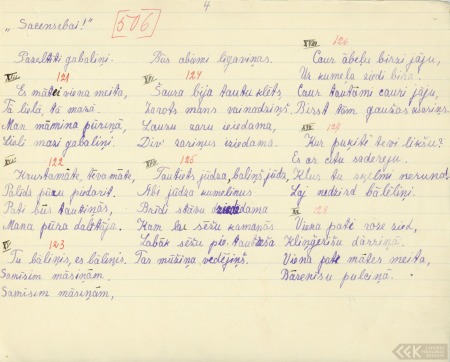 4
"Sacensebai!"
506
Paseltiti gabaliņi.
XIII. 121
Es mātei viena meita,
Tā lielā, tā mazā.
Man māmiņa pūriņā,
Lieli mazi gabaliņi.
XIV. 122
Krustamāte, tēva māte,
Palīdz pūru piedarīt.
Pati būs tautiņās,
Mana pūra dalītāja.
XV. 123
Tu bāliņis, es bāliņis.
Samīsim māsiņām,
Samīsim māsiņām,
Būs abiemi līgaviņas.
XVI. 124
Šaura bija tautu klēts
Karots mans vainadziņš.
Lauzu zaru ieiedama,
Div' zariņus iziedama.
XVII. 125
Tautiets jūdza, bāliņš jūdza,
Abi jūdza kumeliņus.
Brīdi stāvu domādama
Kam lai sēžu kamanās
Labāk sēžu pie tautieša
Tās mūžiņa vedējiņš.
XVIII. 126
Caur ābeļu birzi jāju,
Uz kumeļa ziedi bira.
Caur tautām cauri jāju,
Birst tām gaužas asariņas.
XIX. 127
Kur puķīti tevi likšu?
Es ar citu saderēju.
Klus tu sezleni nerunā
Laj nedzird bāleliņi.
XX. 128
Viena pati roze zied,
Klinģerīšu dārziņā.
Viena pate mātes meita,
Bāreņīšu pulciņā.